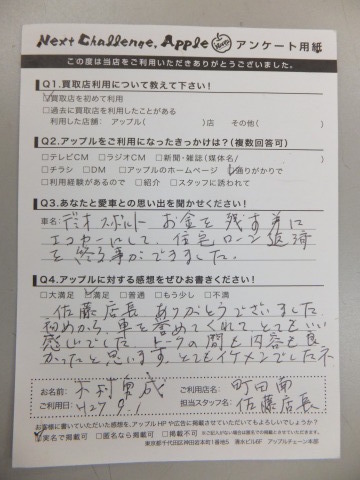 Next Challenge, Apple アンケート用紙
この度は当店をご利用いただきありがとうございました。
Q1.買取店利用について教えて下さい!
☑買取店を初めて利用
□過去に買取店を利用したことがある
利用した店舗: アップル( )店 その他( )
Q2.アップルをご利用になったきっかけは?(複数回答可)
□テレビCM □ラジオCM □新聞・雑誌(媒体名/ )
□チラシ □DM □アップルのホームページ ☑通りがかりで
□利用経験があるので □紹介 □スタッフに誘われて
Q3.あなたと愛車との思い出を聞かせください!
車名: デミオスポルト お金を残す為に
エコカーにして、住宅ローン返済
を終る事ができました。
Q4.アップルに対する感想をぜひお書きください!
□大満足 ☑満足 □普通 □もう少し □不満
佐藤店長 ありがとうございました
初めから、車を誉めてくれて、とてもいい
感じでした トークの間も内容も良
かったと思います。とてもイケメンでしたネ
お名前: 木村 成 ご利用店名: 町田南
ご利用日: H27.9.1 担当スタッフ名: 佐藤店長
お客様に書いていただいた感想を、アップルHPや広告に掲載させていただいてもよろしいでしょうか?
☑実名で掲載可 □匿名なら掲載可 □掲載不可
東京都千代田区神田岩本町1番地5 清水ビル6F アップルチェーン本部